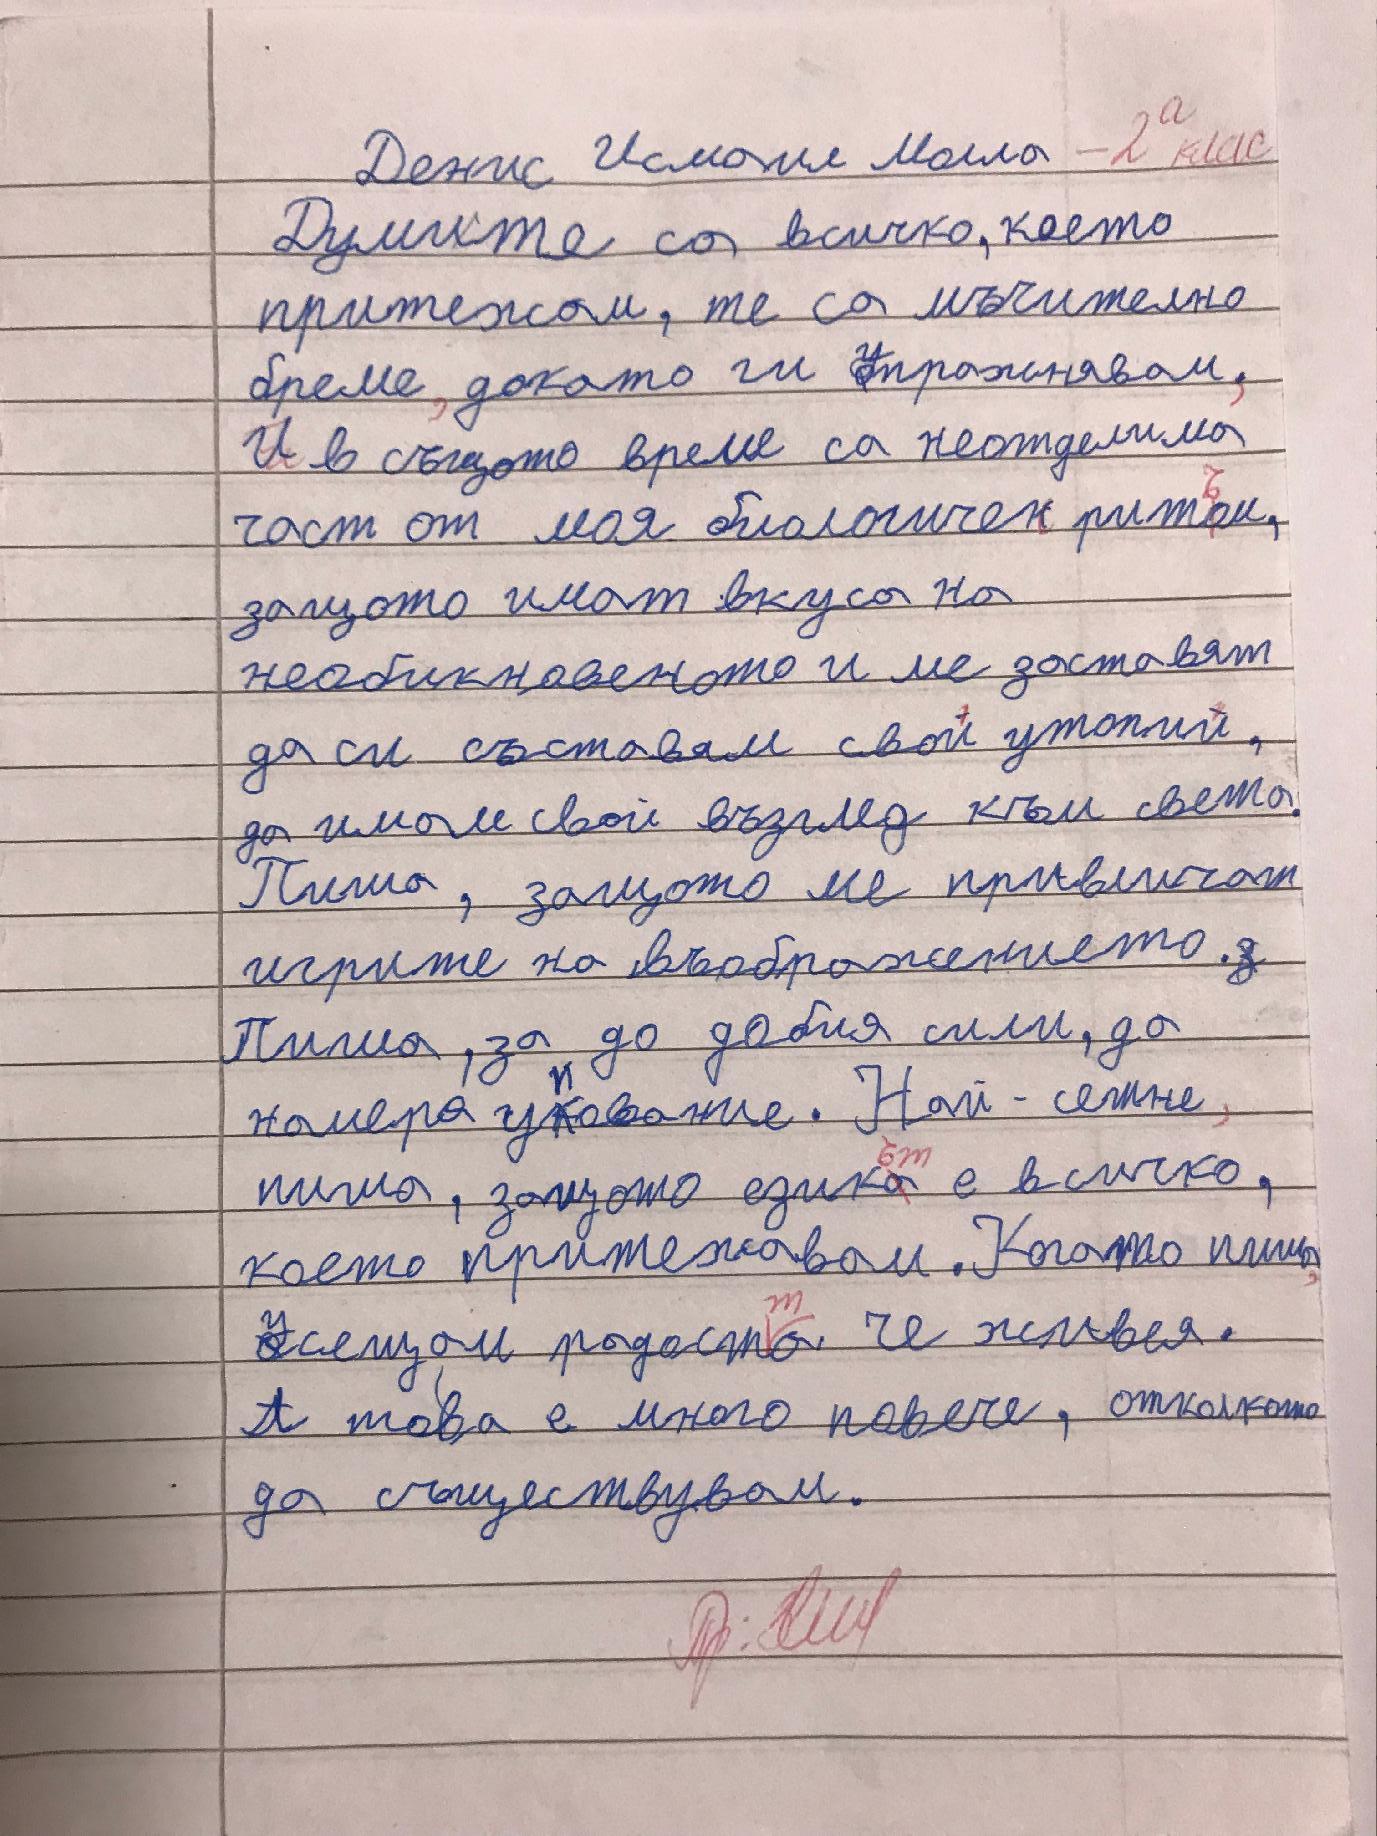 Денис Исмаил Молла - 2а клас
Думите са всичко, което
притежам, те са мъчително
бреме, докато ги упражнявам,
И в същото време са неотделима
част от моя биологичен ритъм,
защото имат вкуса на
необикновеното и ме заставят
да си съставям свои утопии,
да имам свой възглед към света.
Пиша, защото ме привличат
игрите на въображението.
Пиша, за до добия сили, да
намеря упование. Най-сетне,
пиша, защото езикът е всичко,
което притежавам. Когато пиша,
усещам радостта че живея.
А това е много повече, отколкото
да съществувам.